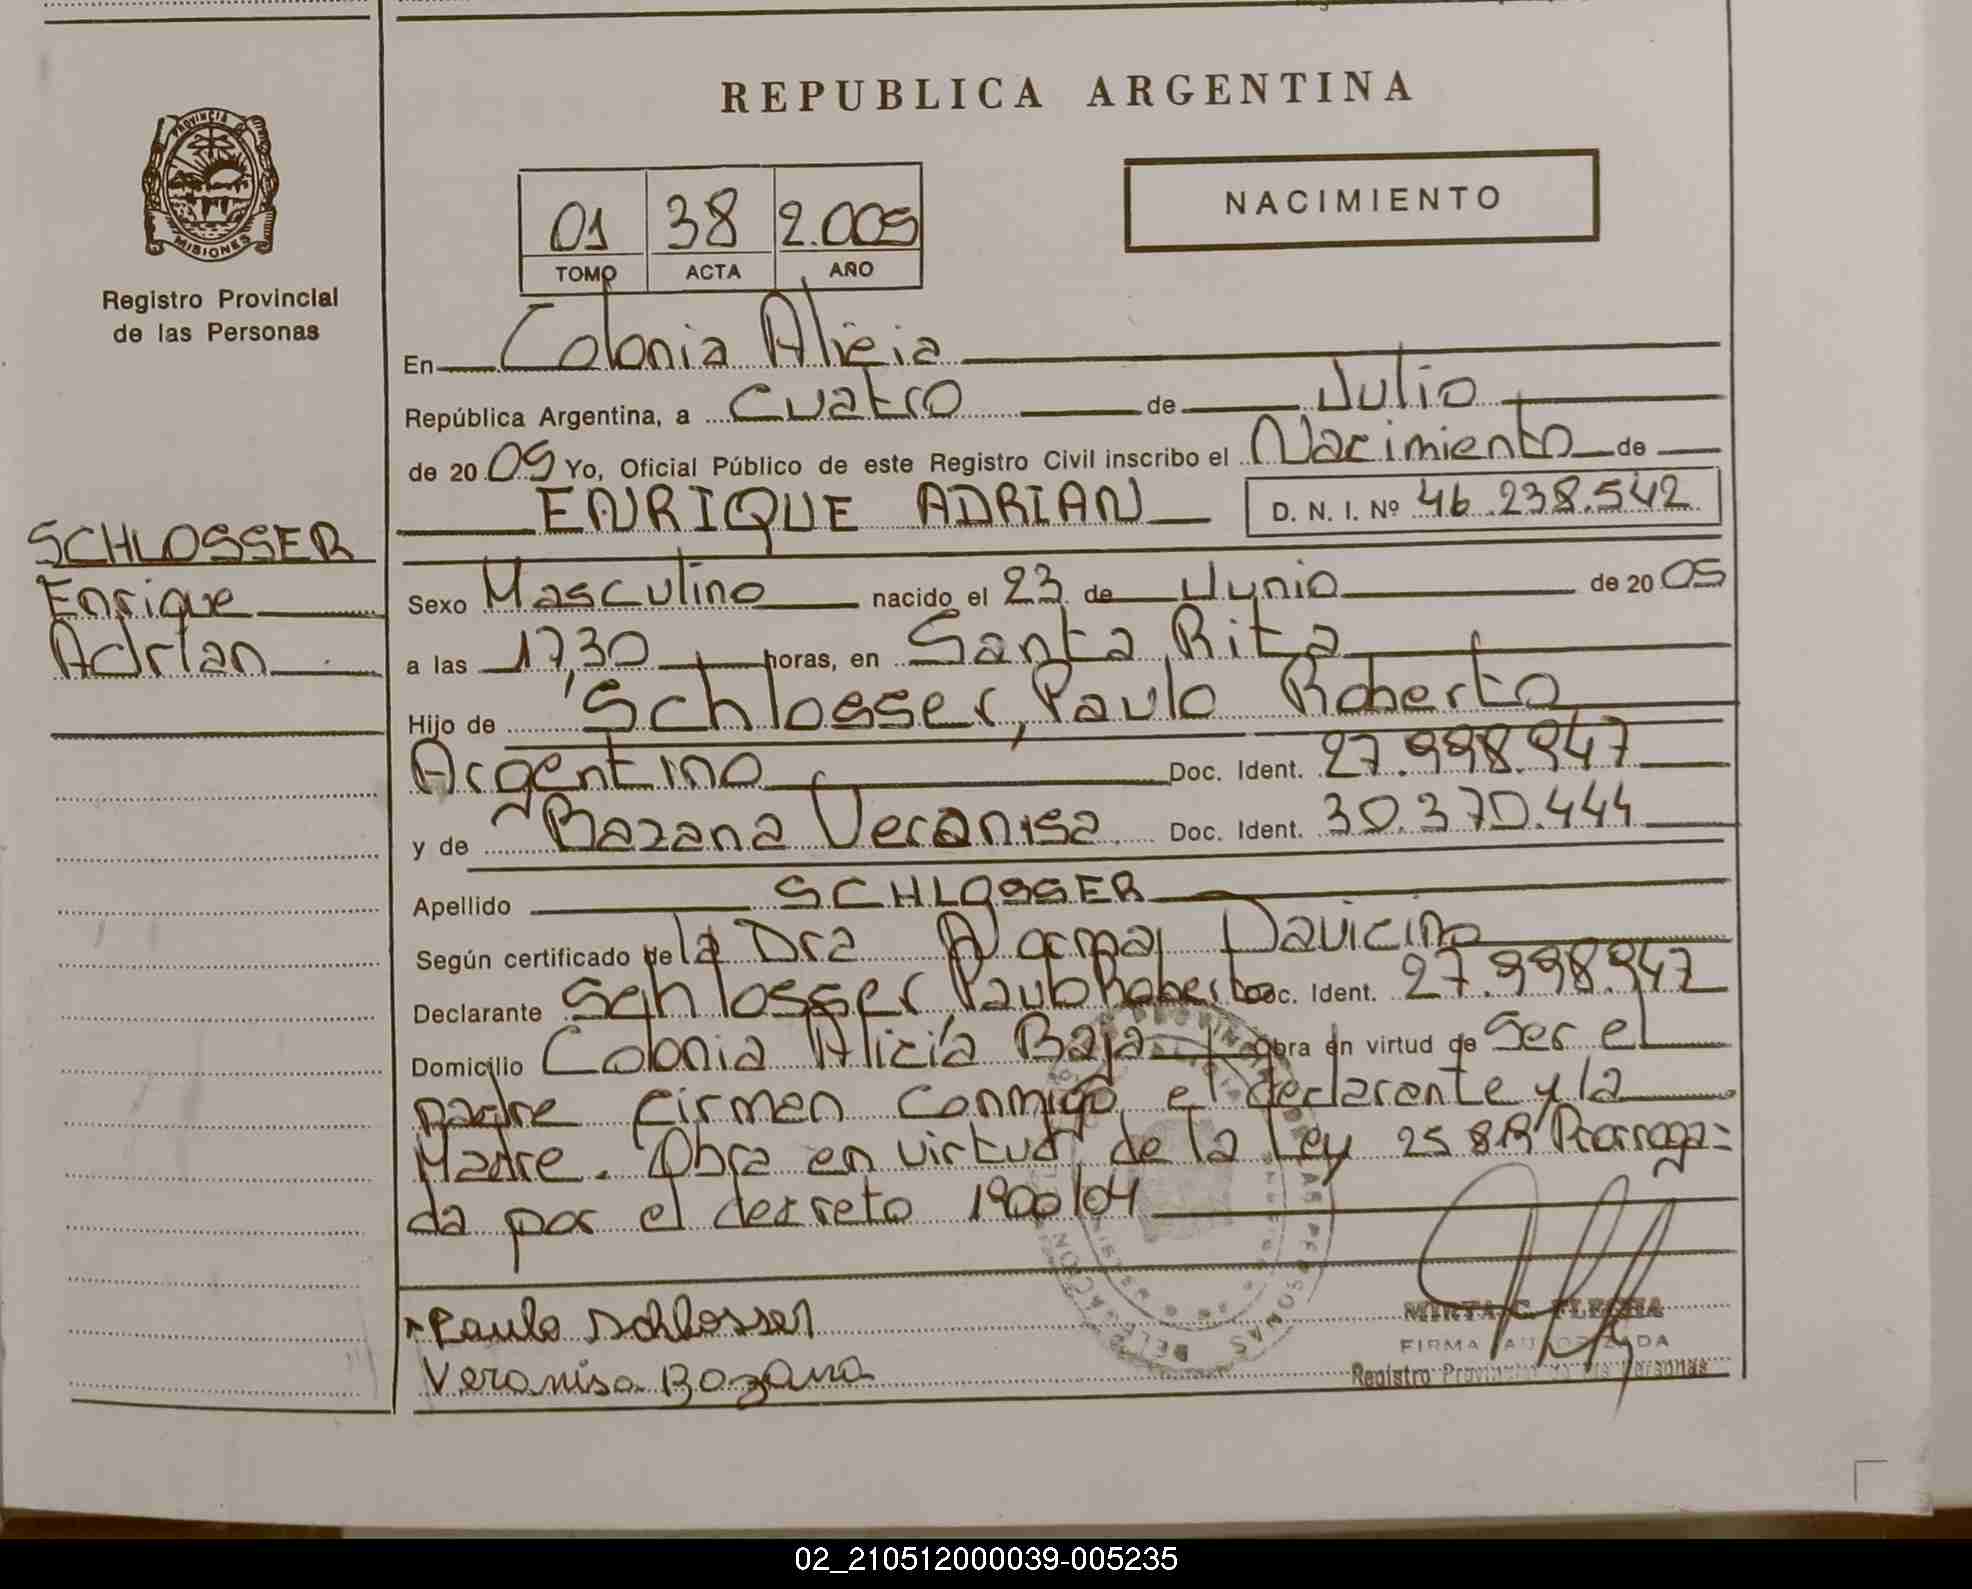 REPUBLICA ARGENTINA
PROVINCIA DE
MISIONES
Registro Provincial
de las Personas
01 38 2.005
TOMO ACTA AÑO
NACIMIENTO
En Colonia Alicia
República Argentina, a Cuatro de Julio
de 20 05 Yo, Oficial Público de este Registro Civil inscribo el Nacimiento de
ENRIQUE ADRIAN D. N. I. Nº 46.238.542
SCHLOSSER
Enrique
Adrian
Sexo Masculino nacido el 23 de Junio de 20 05
a las 17,30 horas, en Santa Rita
Hijo de Schlosser, Paulo Roberto
Argentino Doc. Ident. 27.998.947
y de Bazana Veranisa Doc. Ident. 30.370.444
Apellido SCHLOSSER
Según certificado de la Dra Norma Davicino
Declarante Schlosser, Paulo Roberto Doc. Ident. 27.998.947
Domicilio Colonia Alicia Baja Obra en virtud de Ser el
padre firmen conmigo el declarante y la
Madre. Obra en virtud de la Ley 25 819 Prorroga=
da por el decreto 1900/04
Paulo Schlosser
Veranisa Bazana
MIRTA C. FLECHA
FIRMA AUTORIZADA
Registro Provincial de las Personas
02_210512000039-005235